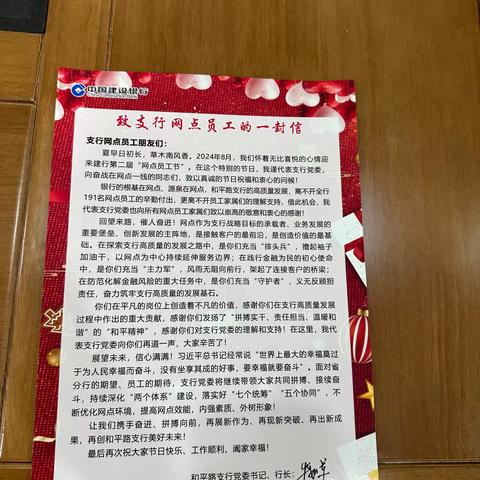 中国建设银行
China Construction Bank
致支行网点员工的一封信
支行网点员工朋友们：
夏早日初长，草木南风香。2024年8月，我们怀着无比喜悦的心情迎
来建行第二届“网点员工节”。在这个特别的节日，我谨代表支行党委，
向奋战在网点一线的同志们，致以真诚的节日祝福和衷心的问候！
银行的根基在网点、源泉在网点，和平路支行的高质量发展，离不开全行
191名网点员工的辛勤付出，更离不开员工家属们的理解支持，值此机会，我
代表支行党委也向所有网点员工家属们致以崇高的敬意和衷心的感谢！
回望来路，催人奋进！网点作为支行战略目标的承载者、业务发展的
重要堡垒、创新发展的主阵地，是接触客户的最前沿，是创造价值的最基
础。在探索支行高质量发展之路中，是你们充当“排头兵”，撸起袖子
加油干，以网点为中心持续延伸服务边界；在践行金融为民的初心使命
中，是你们充当“主力军”，风雨无阻向前行，架起了连接客户的桥梁；
在防范化解金融风险的重大任务中，是你们充当“守护者”，义无反顾担
责任，奋力筑牢支行高质量的发展基石。
你们在平凡的岗位上创造着不凡的价值，感谢你们在支行高质量发展
过程中作出的重大贡献，感谢你们发扬了“拼搏实干、责任担当、温暖和
谐”的“和平精神”，感谢你们对支行党委的理解和支持！在这里，我代
表支行党委向你们再道一声，大家辛苦了！
展望未来，信心满满！习近平总书记经常说“世界上最大的幸福莫过
于为人民幸福而奋斗，没有坐享其成的好事，要幸福就要奋斗”。面对省
分行的期望、员工的期待，支行党委将继续带领大家共同拼搏、接续奋
斗，持续深化“两个体系”建设，落实好“七个统筹”“五个协同”，不
断优化网点环境，提高网点效能，内强素质、外树形象！
让我们携手奋进、拼搏向前，再展新作为、再现新突破、再出新成
果，再创和平路支行美好未来！
最后再次祝大家节日快乐、工作顺利、阖家幸福！
和平路支行党委书记、行长：